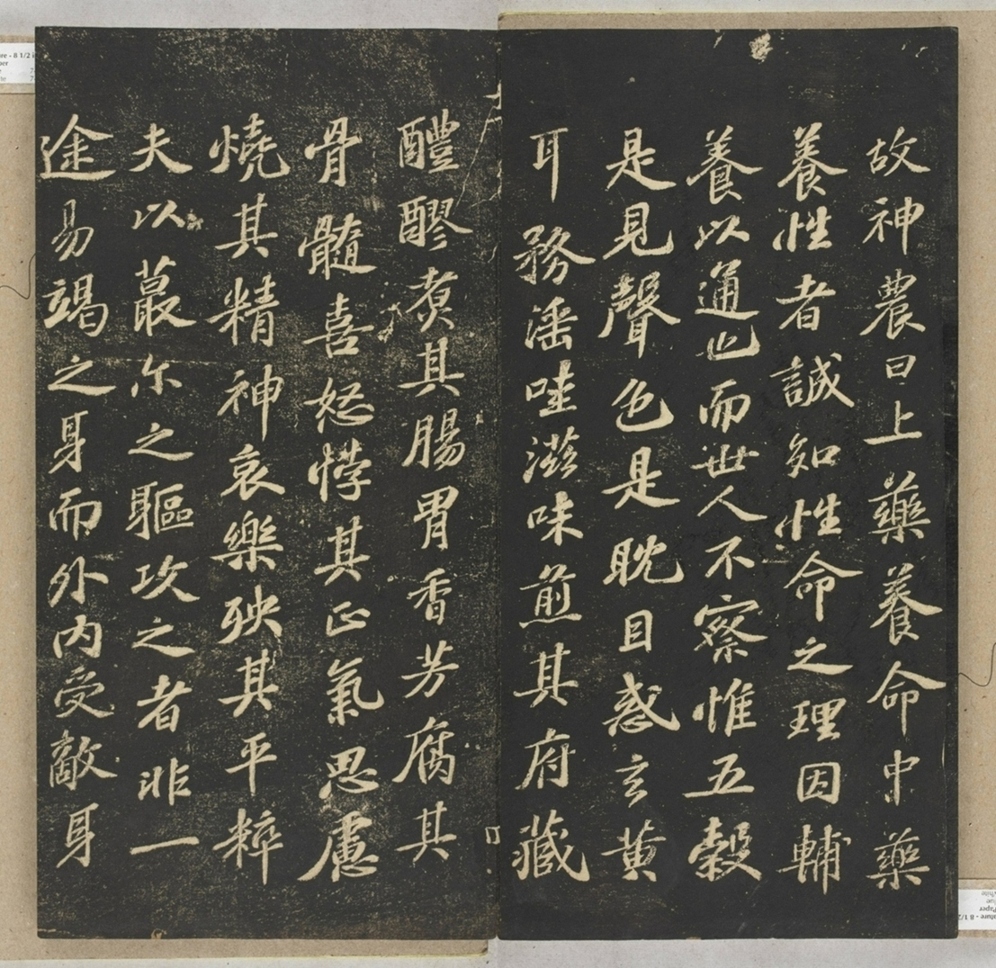 故神農曰上藥養命中藥
養性者誠知性命之理因輔
養以通也而世人不察惟五穀
是見聲色是耽目惑玄黃
耳務滛哇滋味煎其府藏
醴醪煑其腸胃香芳腐其
骨髓喜怒悖其正氣思慮
燒其精神哀樂殃其平粹
夫以蕞尓之軀攻之者非一
途易竭之身而外内受敵身